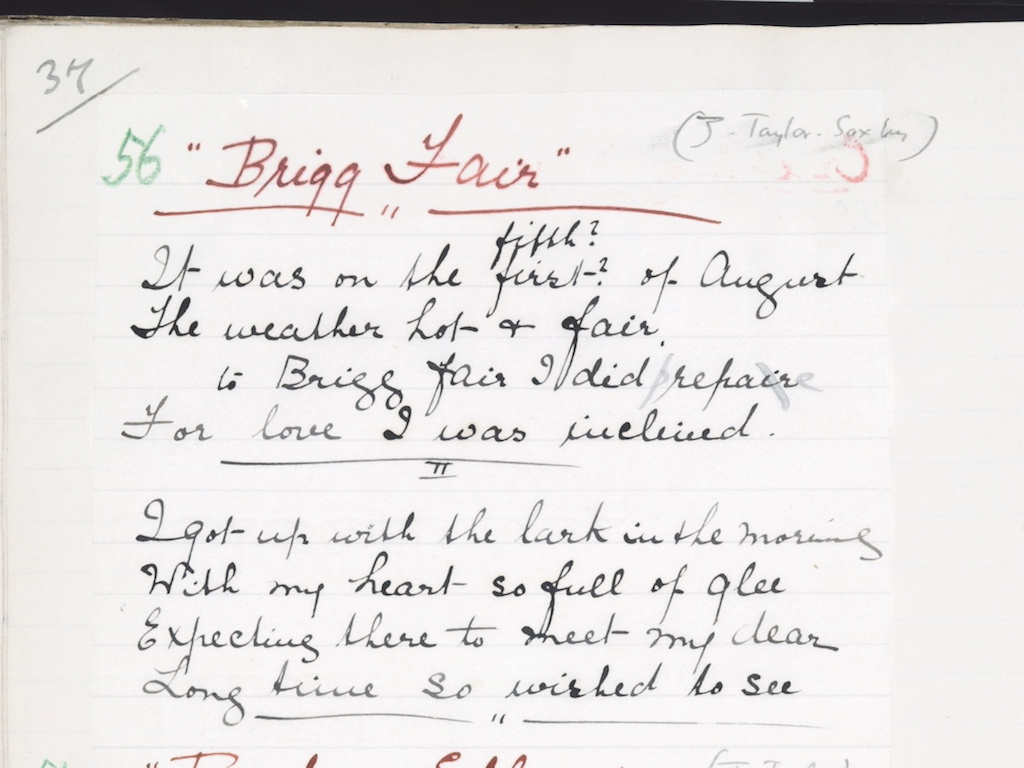 37
(J. Taylor. Saxby)
56 "Brigg Fair"
fifth?
It was on the first? of August
The weather hot & fair.
to Brigg fair I did repair
For love I was inclined.
II
I got up with the lark in the morning
With my heart so full of glee
Expecting there to meet my dear
Long time so wished to see